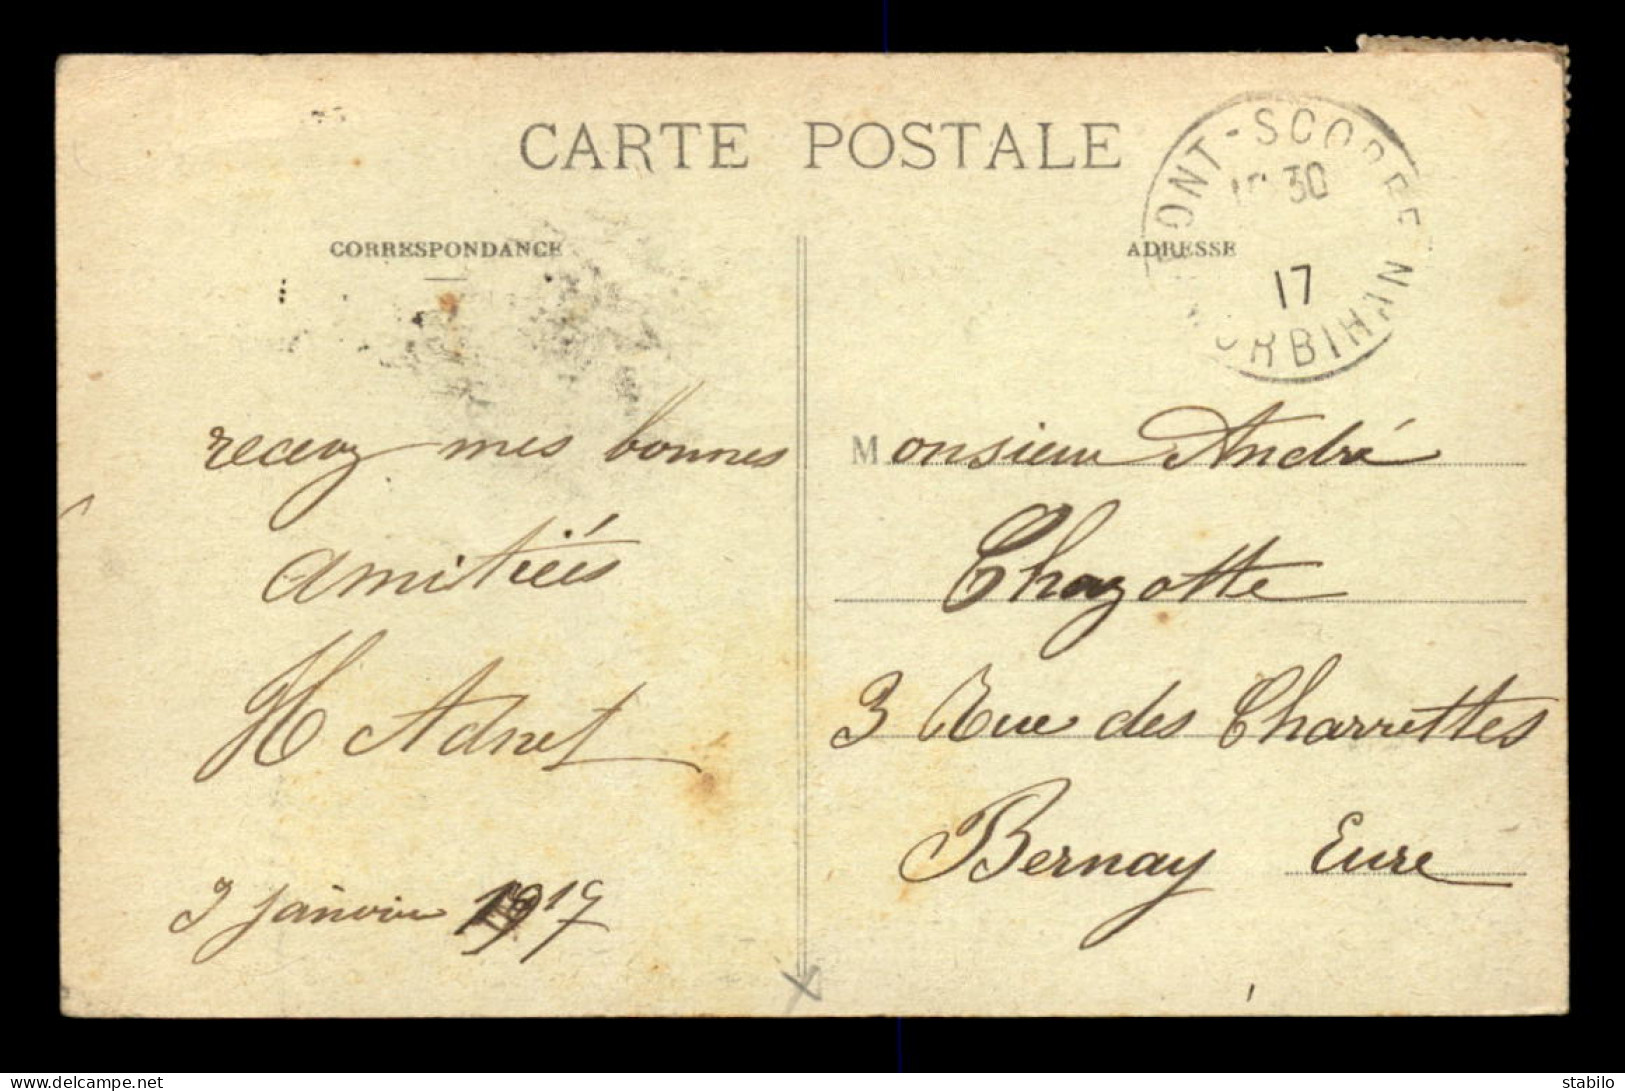 CARTE POSTALE
CORRESPONDANCE
ADRESSE
PONT-SCORFF
30
17
MORBIHAN
recevez mes bonnes
amitiés
H Adnet
3 janvier 1917
Monsieur André
Chazotte
3 Rue des Charrettes
Bernay Eure
delcampe.net
stabilo